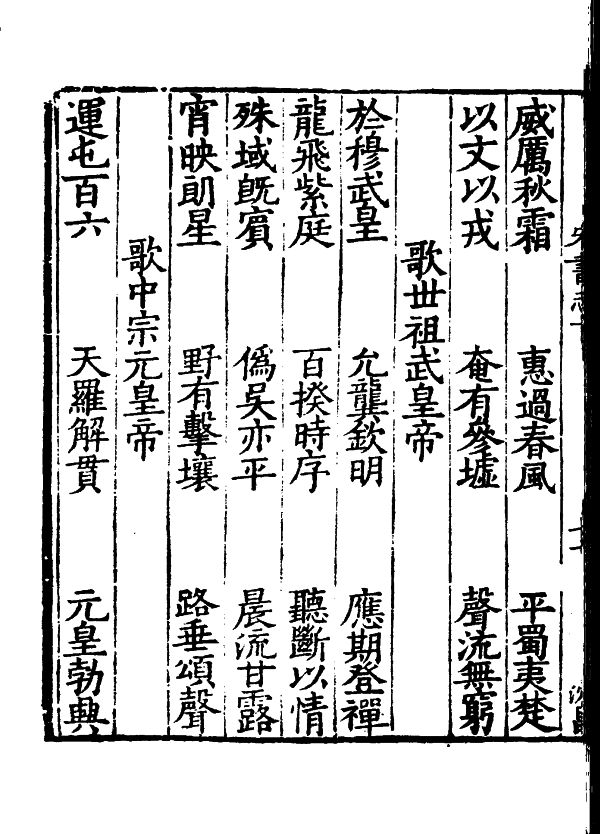 威厲秋霜 惠過春風 平蜀夷楚
以文以戎 奄有參墟 聲流無窮
歌世祖武皇帝
於穆武皇 允龔欽明 應期登禪
龍飛紫庭 百揆時序 聽斷以情
殊域旣賓 僞吳亦平 晨流甘露
宵映朗星 野有擊壤 路垂頌聲
歌中宗元皇帝
運屯百六 天羅解貫 元皇勃興